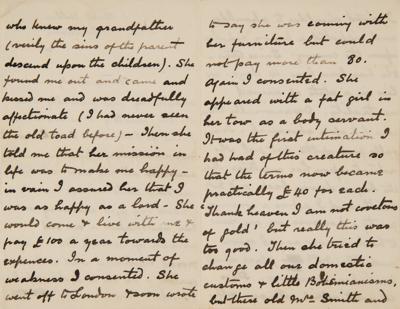 who knew my grandfather
(verily the sins of the parent
descend upon the children). She
found me out and came and
kissed me and was dreadfully
affectionate (I had never seen
the old toad before) - Then she
told me that her mission in
life was to make me happy -
in vain I assured her that I
was as happy as a lord - She
would come & live with me &
pay £100 a year towards the
expences. In a moment of
weakness I consented. She
went off to London & soon wrote
to say she was coming with
her furniture but could
not pay more than 80.
Again I consented. She
appeared with a fat girl in
her tow as a body servant.
It was the first intimation I
had had of this creature so
that the terms now became
practically £40 for each.
'Thank heaven I am not covetous
of gold' but really this was
too good. Then she tried to
change all our domestic
customs & little Bohemianisms,
but there old Mrs Smith and